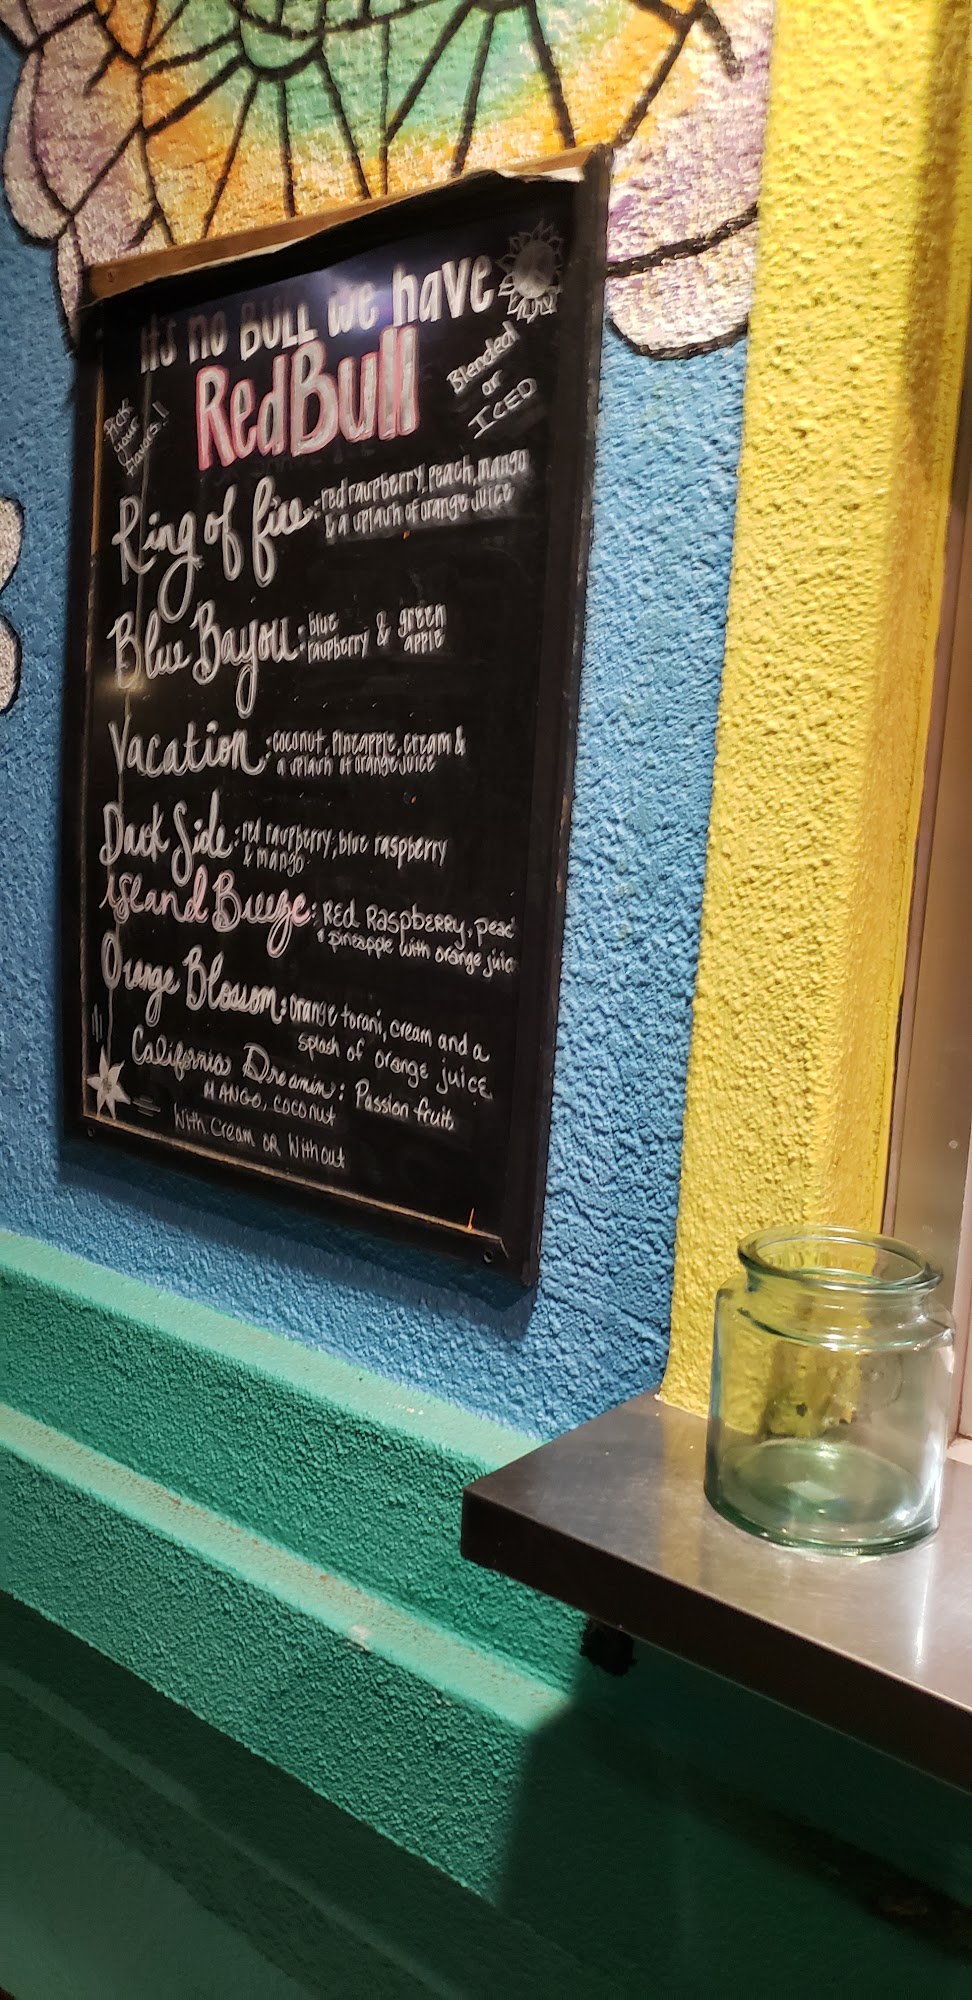 it's no BULL we have
RedBull
Blended
or
ICED
Pick
your
flavors!!
Ring of fire: red raspberry, peach, mango
& a splash of orange juice
Blue Bayou: blue raspberry & green apple
Vacation: coconut, pineapple, cream &
a splash of orange juice
Dark Side: red raspberry, blue raspberry
& mango
Island Breeze: RED RaspbeRRy, peac
& pineapple with orange juic
Orange Blossom: orange torani, cream and a
splash of orange juice
California Dreamin: Passion fruit
MANGO, COCONUT
With Cream OR Without